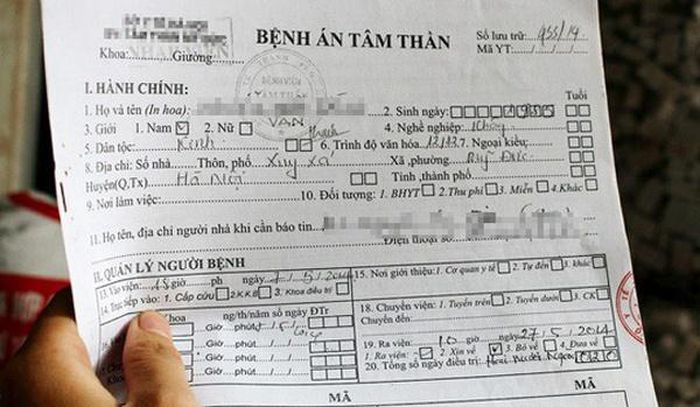 BỆNH ÁN TÂM THẦN
Số lưu trữ: 955/14
Khoa: Giường:
Mã YT:
BỆNH VIỆN
TÂM THẦN
I. HÀNH CHÍNH: Tuổi
1. Họ và tên (In hoa): VẠN 2. Sinh ngày:
3. Giới 1. Nam 2. Nữ 4. Nghề nghiệp:
5. Dân tộc: Kinh 6. Trình độ văn hóa 12/12 7. Ngoại kiều:
8. Địa chỉ: Số nhà Thôn, phố Xã, phường
Huyện(Q,Tx) Hà Nội Tỉnh, thành phố
9. Nơi làm việc: 10. Đối tượng: 1. BHYT 2. Thu phí 3. Miễn 4. Khác
11. Họ tên, địa chỉ người nhà khi cần báo tin
Điện thoại số
II. QUẢN LÝ NGƯỜI BỆNH
13. Vào viện: giờ ph ngày 7/5/2014 15. Nơi giới thiệu: 1. Cơ quan y tế 2. Tự đến 3. khác
14. Trực tiếp vào: 1. Cấp cứu 2. K.K.B 3. Khoa điều trị
Khoa ng/th/năm số ngày ĐTr 18. Chuyển viện: 1. Tuyến trên 2. Tuyến dưới 3. CK
Giờ phút Chuyển đến:
Giờ phút 19. Ra viện: 10 giờ ngày 27/5/2014
Giờ phút 1. Ra viện: 2. Xin về 3. Bỏ về 4. Đưa về
Giờ phút 20. Tổng số ngày điều trị:
MÃ MÃ